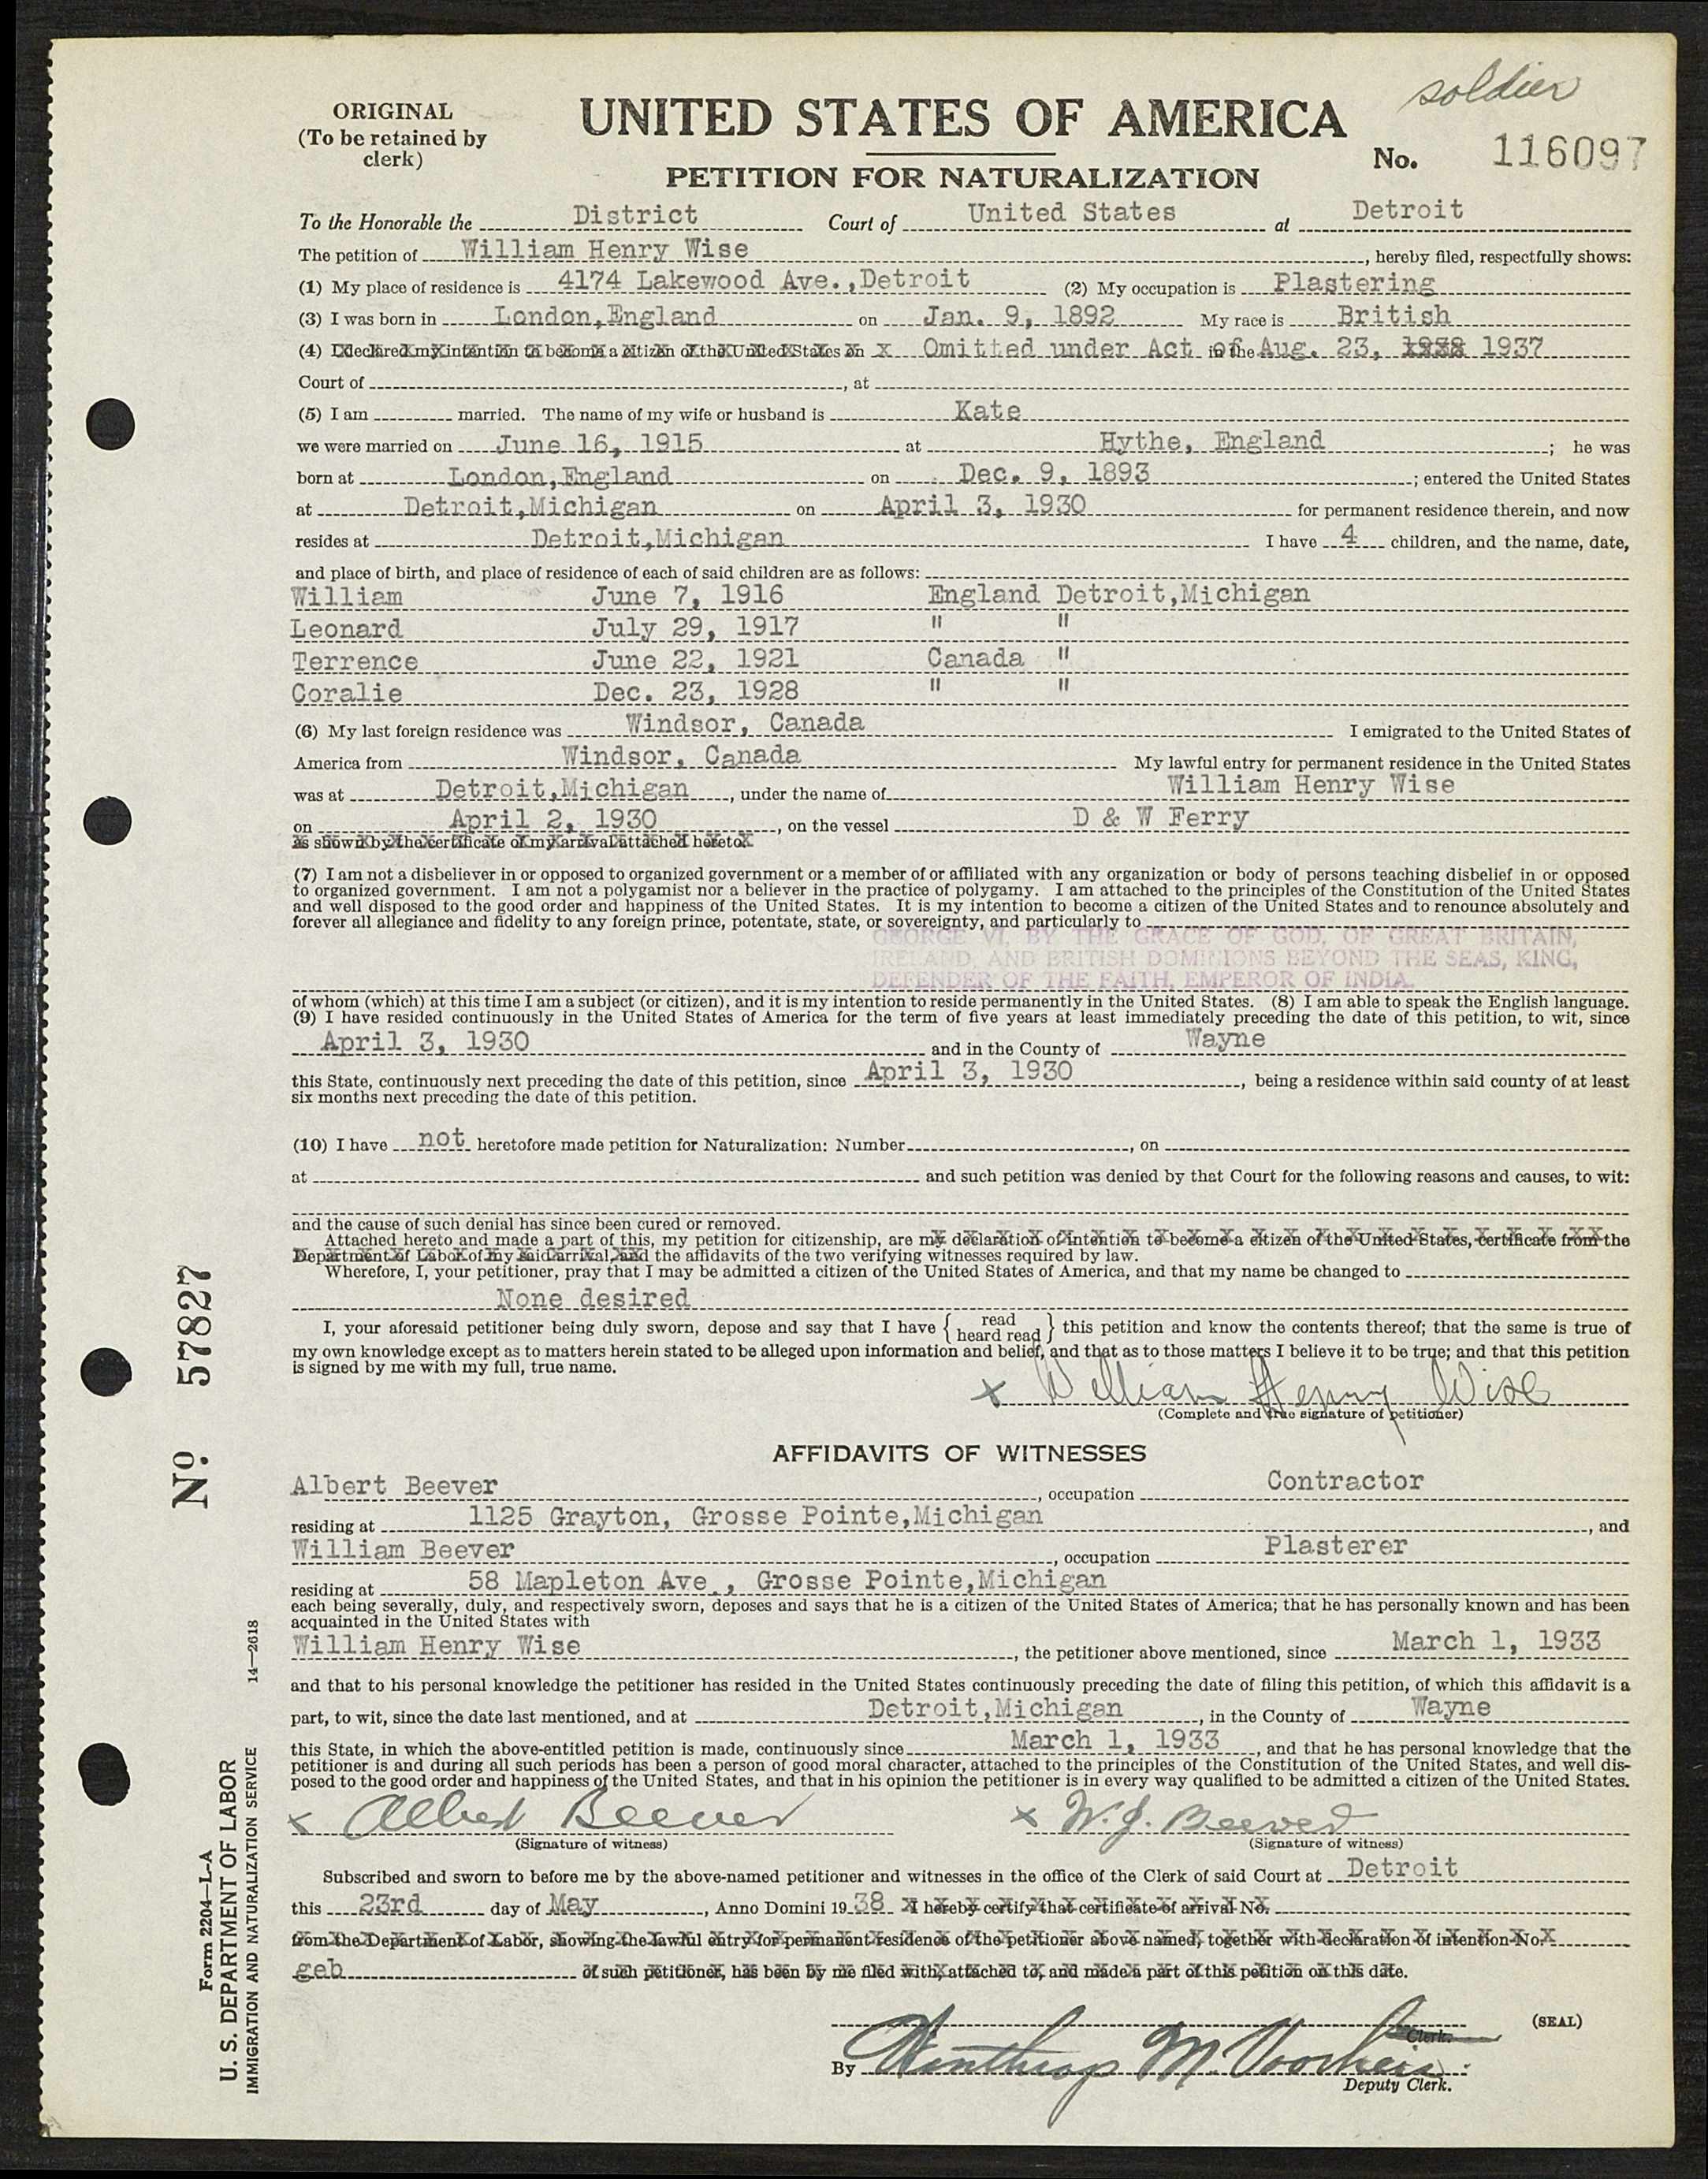 soldier
ORIGINAL
(To be retained by
clerk)
UNITED STATES OF AMERICA
No. 116097
PETITION FOR NATURALIZATION
To the Honorable the District Court of United States at Detroit
The petition of William Henry Wise, hereby filed, respectfully shows:
(1) My place of residence is 4174 Lakewood Ave.,Detroit (2) My occupation is Plastering
(3) I was born in London,England on Jan. 9, 1892 My race is British
(4) I declared my intention to become a citizen of the United States on x Omitted under Act of in the Aug. 23, 1938 1937
Court of , at
(5) I am married. The name of my wife or husband is Kate
we were married on June 16, 1915 at Hythe, England ; he was
born at London,England on Dec. 9, 1893 ; entered the United States
at Detroit,Michigan on April 3, 1930 for permanent residence therein, and now
resides at Detroit,Michigan I have 4 children, and the name, date,
and place of birth, and place of residence of each of said children are as follows:
William June 7, 1916 England Detroit,Michigan
Leonard July 29, 1917 " "
Terrence June 22, 1921 Canada "
Coralie Dec. 23, 1928 " "
(6) My last foreign residence was Windsor, Canada I emigrated to the United States of
America from Windsor, Canada My lawful entry for permanent residence in the United States
was at Detroit,Michigan, under the name of William Henry Wise
on April 2, 1930, on the vessel D & W Ferry
as shown by the certificate of my arrival attached hereto.
(7) I am not a disbeliever in or opposed to organized government or a member of or affiliated with any organization or body of persons teaching disbelief in or opposed
to organized government. I am not a polygamist nor a believer in the practice of polygamy. I am attached to the principles of the Constitution of the United States
and well disposed to the good order and happiness of the United States. It is my intention to become a citizen of the United States and to renounce absolutely and
forever all allegiance and fidelity to any foreign prince, potentate, state, or sovereignty, and particularly to
GEORGE VI, BY THE GRACE OF GOD, OF GREAT BRITAIN,
IRELAND, AND BRITISH DOMINIONS BEYOND THE SEAS, KING,
DEFENDER OF THE FAITH, EMPEROR OF INDIA.
of whom (which) at this time I am a subject (or citizen), and it is my intention to reside permanently in the United States. (8) I am able to speak the English language.
(9) I have resided continuously in the United States of America for the term of five years at least immediately preceding the date of this petition, to wit, since
April 3, 1930 and in the County of Wayne
this State, continuously next preceding the date of this petition, since April 3, 1930, being a residence within said county of at least
six months next preceding the date of this petition.
(10) I have not heretofore made petition for Naturalization: Number , on
at and such petition was denied by that Court for the following reasons and causes, to wit:
and the cause of such denial has since been cured or removed.
Attached hereto and made a part of this, my petition for citizenship, are my declaration of intention to become a citizen of the United States, certificate from the
Department of Labor of my said arrival, and the affidavits of the two verifying witnesses required by law.
Wherefore, I, your petitioner, pray that I may be admitted a citizen of the United States of America, and that my name be changed to
None desired
I, your aforesaid petitioner being duly sworn, depose and say that I have { read
heard read } this petition and know the contents thereof; that the same is true of
my own knowledge except as to matters herein stated to be alleged upon information and belief, and that as to those matters I believe it to be true; and that this petition
is signed by me with my full, true name.
x William Henry Wise
(Complete and true signature of petitioner)
AFFIDAVITS OF WITNESSES
Albert Beever, occupation Contractor
residing at 1125 Grayton, Grosse Pointe,Michigan, and
William Beever, occupation Plasterer
residing at 58 Mapleton Ave., Grosse Pointe,Michigan
each being severally, duly, and respectively sworn, deposes and says that he is a citizen of the United States of America; that he has personally known and has been
acquainted in the United States with
William Henry Wise, the petitioner above mentioned, since March 1, 1933
and that to his personal knowledge the petitioner has resided in the United States continuously preceding the date of filing this petition, of which this affidavit is a
part, to wit, since the date last mentioned, and at Detroit,Michigan, in the County of Wayne
this State, in which the above-entitled petition is made, continuously since March 1, 1933, and that he has personal knowledge that the
petitioner is and during all such periods has been a person of good moral character, attached to the principles of the Constitution of the United States, and well dis-
posed to the good order and happiness of the United States, and that in his opinion the petitioner is in every way qualified to be admitted a citizen of the United States.
x Albert Beever x W. J. Beever
(Signature of witness) (Signature of witness)
Subscribed and sworn to before me by the above-named petitioner and witnesses in the office of the Clerk of said Court at Detroit
this 23rd day of May, Anno Domini 1938 I hereby certify that certificate of arrival No.
from the Department of Labor, showing the lawful entry for permanent residence of the petitioner above named, together with declaration of intention No.
geb of such petitioner, has been by me filed with, attached to, and made a part of this petition on this date.
Clerk.
(SEAL)
By Winthrop M. Voorheis
Deputy Clerk.
No. 57827
14—2618
Form 2204—L-A
U. S. DEPARTMENT OF LABOR
IMMIGRATION AND NATURALIZATION SERVICE